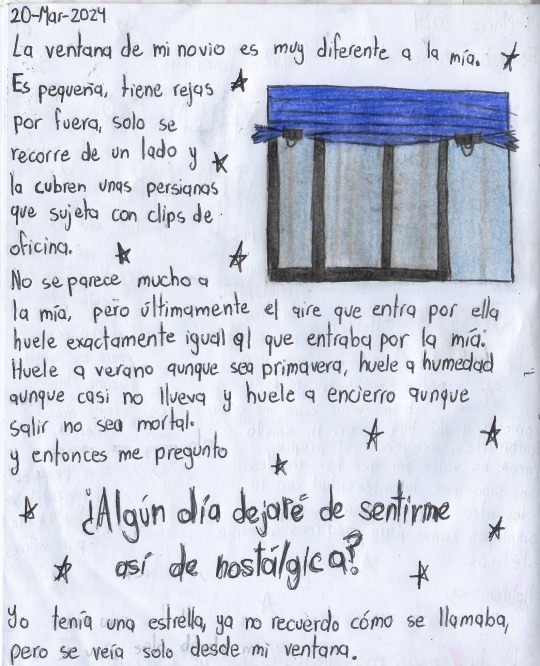 20-Mar-2024
La ventana de mi novio es muy diferente a la mía.
Es pequeña, tiene rejas
por fuera, solo se
recorre de un lado y
la cubren unas persianas
que sujeta con clips de
oficina.
No se parece mucho a
la mía, pero últimamente el aire que entra por ella
huele exactamente igual al que entraba por la mía:
Huele a verano aunque sea primavera, huele a humedad
aunque casi no llueva y huele a encierro aunque
salir no sea mortal.
y entonces me pregunto
¿Algún día dejaré de sentirme
así de nostálgica?
Yo tenía una estrella, ya no recuerdo cómo se llamaba,
pero se veía solo desde mi ventana.